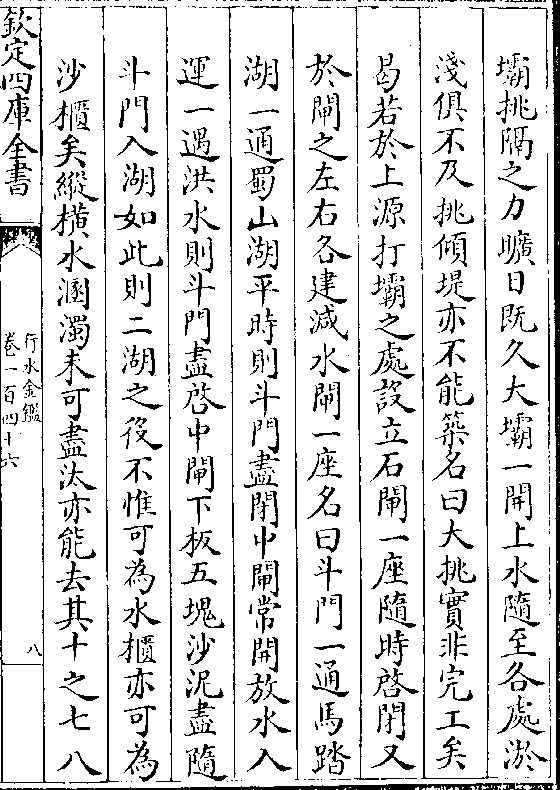 壩挑隔之力曠日既久大壩一開上水隨至各處淤
淺俱不及挑傾堤亦不能築名曰大挑實非完工矣
曷若於上源打壩之處設立石閘一座隨時啓閉又
於閘之左右各建減水閘一座名曰斗門一通馬踏
湖一通蜀山湖平時則斗門盡閉中閘常開放水入
運一遇洪水則斗門盡啓中閘下板五塊沙泥盡隨
斗門入湖如此則二湖之役不惟可為水櫃亦可為
沙櫃矣縱橫水溷濁未可盡汰亦能去其十之七八
欽定四庫全書
行水金鑑
卷一百四十六
八